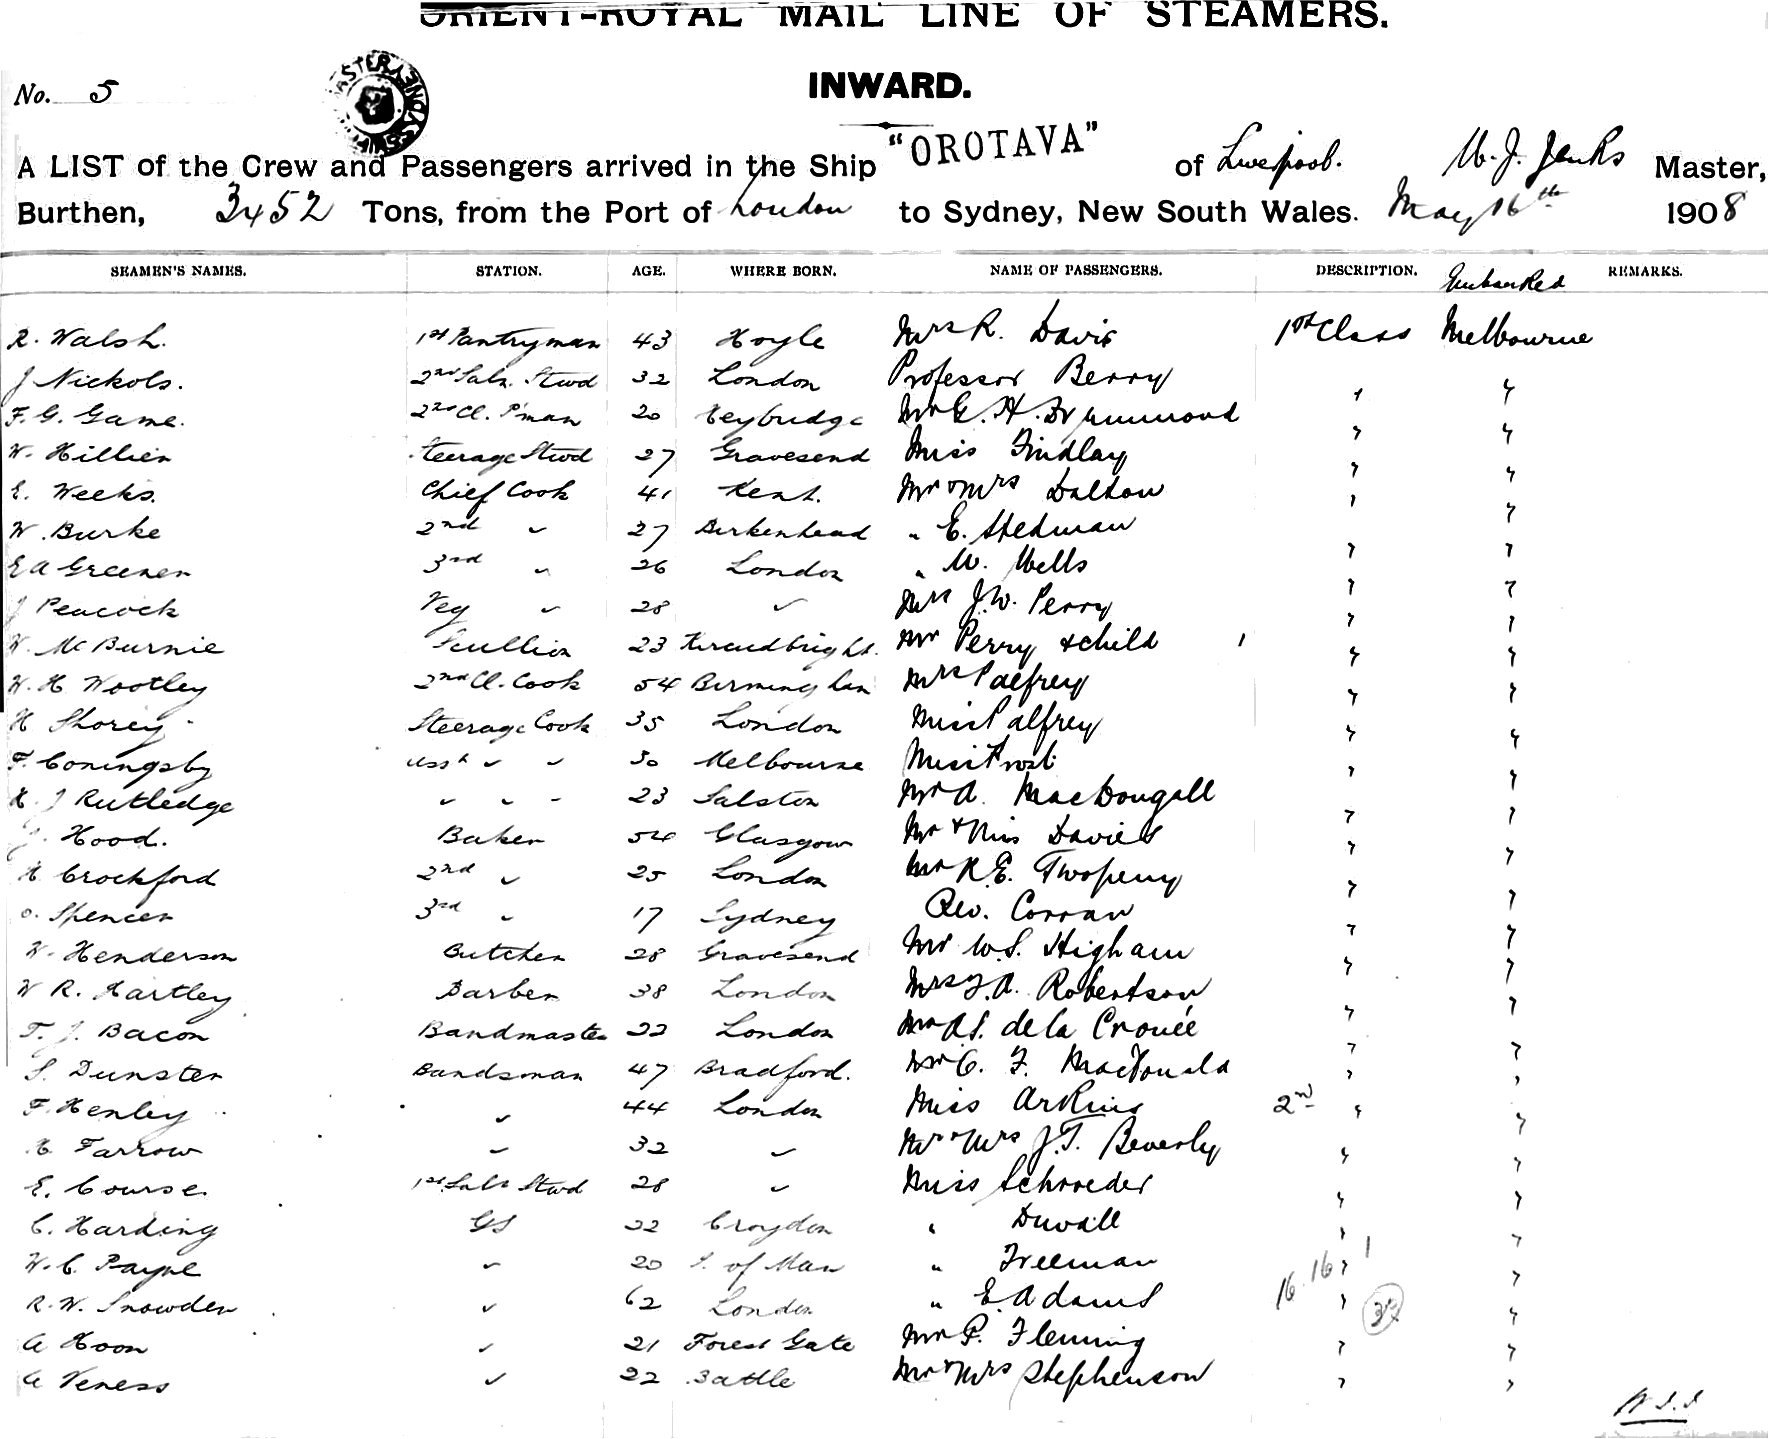 ORIENT-ROYAL MAIL LINE OF STEAMERS.
No. 5
INWARD.
A LIST of the Crew and Passengers arrived in the Ship "OROTAVA" of Liverpool. W. J. Jenks Master,
Burthen, 3452 Tons, from the Port of London to Sydney, New South Wales. May 16th 1908
SEAMEN'S NAMES. STATION. AGE. WHERE BORN. NAME OF PASSENGERS. DESCRIPTION. Embarked REMARKS.
R. Walsh. 1st Pantryman 43 Hoyle Mrs R. Davis 1st Class Melbourne
J Nickols. 2nd Saln. Stwd 32 London Professor Berry " "
F. G. Game. 2nd Cl. P'man 20 Heybridge Mr G. H. Drummond " "
W. Hillier Steerage Stwd 27 Gravesend Miss Findlay " "
E. Weeks. Chief Cook 41 Kent. Mr & Mrs Dalton " "
W. Burke 2nd " 27 Birkenhead " E. Stedman " "
E A Greener 3rd " 26 London " W. Wells " "
J Peacock Veg " 28 " Mrs J. W. Perry " "
W. McBurnie Scullion 23 Kircudbright. Mr Perry & child 1 " "
W. H Wootley 2nd Cl. Cook 54 Birmingham Mrs Palfrey " "
H Shorey Steerage Cook 35 London Miss Palfrey " "
F. Coningsby Asst " " 30 Melbourne Miss Frost " "
H. J Rutledge " " " 23 Salston Mr A. MacDougall " "
J. Hood. Baker 54 Glasgow Mr & Miss Davies " "
H Crockford 2nd " 25 London Mr R. E. Twopeny " "
O. Spencer 3rd " 17 Sydney Rev. Corran " "
W. Henderson Butcher 28 Gravesend Mr W. S. Higham " "
W R. Hartley Barber 38 London Mrs J. A. Robertson " "
T. J. Bacon Bandmaster 22 London Mr A S. de la Crouée " "
S. Dunster Bandsman 47 Bradford. Mr C. F. MacDonald " "
F. Henley " 44 London Miss Arkins 2nd " "
H. Farrow " 32 " Mr & Mrs J. T. Beverly " "
E. Course. 1st Saln Stwd 28 " Miss Schroeder " "
C. Harding GS 22 Croydon " Duvall " "
W. C. Payne " 20 I. of Man " Freeman 16 16 1 " "
R. W. Snowden " 62 London " E. Adams " "
A Hoon " 21 Forest Gate Mr P. Fleming " "
A Veness " 22 Battle Mr & Mrs Stephenson " "